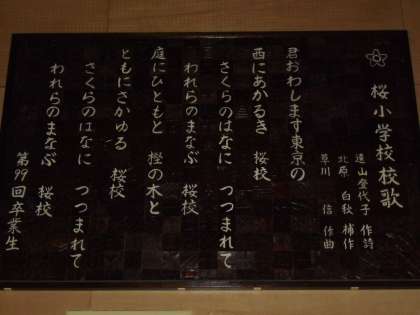 桜小学校校歌
遠山登代子 作詩
北原 白秋 補作
草川 信 作曲
君おわします東京の
西にあかるき 桜校
さくらのはなに つつまれて
われらのまなぶ 桜校
庭にひともと 樫の木と
ともにさかゆる 桜校
さくらのはなに つつまれて
われらのまなぶ 桜校
第99回卒業生